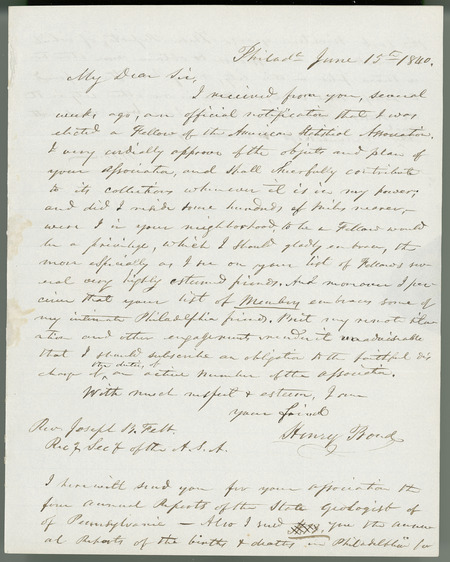 Philada June 15th 1840.
My Dear Sir,
I received from you, several
weeks ago, an official notification that I was
elected a Fellow of the American Statistical Association.
I very cordially approve of the objects and plan of
your Association, and shall cheerfully contribute
to its collections whenever it is in my power;
and did I reside some hundreds of miles nearer,—
were I in your neighborhood, to be a Fellow would
be a privilege, which I should gladly embrace, the
more especially as I see on your list of Fellows sev-
eral very highly esteemed friends. And moreover I per-
ceive that your list of Members embraces some of
my intimate Philadelphia friends. But my remote situ-
ation and other engagements render it unadvisable
that I should subscribe an obligation to the faithful dis
charge of the duties of an active member of the association.
With much respect & esteem, I am
your friend
Henry Bond
Rev. Joseph B. Felt.
Recg Secy of the A. S. A.
I here will send you for your association the
four annual Reports of the State Geologist of
of Pennsylvania — Also I send you the annu-
al Reports of the births & deaths in Philadelphia for